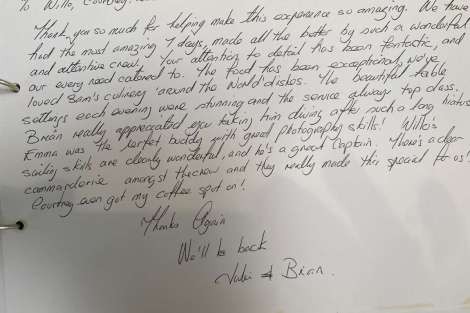 To Willo, Courtney,
Thank you so much for helping make this experience so amazing. We have
had the most amazing 7 days, made all the better by such a wonderful
and attentive crew. Your attention to detail has been fantastic, and
our every need catered to. The food has been exceptional, we've
loved Sam's culinary 'around the World' dishes. The beautiful table
settings each evening were stunning and the service always top class.
Brian really appreciated you taking him diving after such a long hiatus
Emma was the perfect buddy with great photography skills! Willo's
sailing skills are clearly wonderful, and he's a great Captain. There's a clear
commarderie amongst the crew and they really made this special for us!
Courtney even got my coffee spot on!
Thanks Again
We'll be back
& Brian.